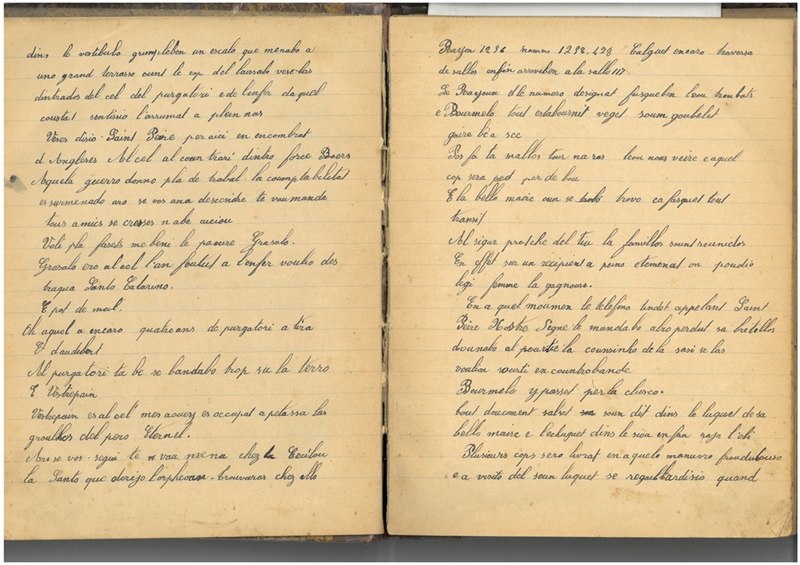 dins le vestibulo grimpleben un escalo que menabo a
uno grand terrasso ount le cop del laussalo vese las
dintrados del cel del purgatori e de l'infer daquel
coustat sentisio l'arrumat a plen nas
Veses disio Saint Peire per aici en encombrat
d Angleses Al cel al countrari dintro force Boers
Aquelo guerro donno pla de trabal la coumptabilitat
es surmenado aro se vos ana descendre te vau manda
tous amics se cresses n abe
Voli pla fasets me beni le paoure Grasalo.
Grasalo ero al cel l'an foutut a l'enfer voulio des
bragua Santo Catarino.
E pot de mul.
Oh aquel a encaro quatre ans de purgatori a tira
E daudibert
Al purgatori ta be se bandabo trop su la terro
E Vistrepain
Vistrepain es al cel mes aoucey es occupat a petassa las
groullos del pero Eternel.
Aro se vos segui le n vau mena chez la Cecilou
la Santo que derijo l'orpheon trouvaras chez ello
Rayon 1256 numero 1298.428 Calguet encaro traversa
de sallos enfin arriviben a la sallo 117
Le Rayoun d le numero designat fusqueben leou troubats
e Bourmelo tout estabournit veget soun goubelet
gaire be a sec
Pos fa ta mallos tour na ras leou nous veire e aquel
cop sera pod per de bou
E la bello maire oun se trovo ca fasquet tout
transit
Al sigur protche del tiu la famillos sount reunidos
En effet sur un recipient a peino etemenat on poudio
legi femme la gagnouso.
En a quel moumen le telefono tindet appelant Saint
Peire Nostre Segne le mandabo abio perdut sa bretellos
dounabo al pourtié la counsinho de la sasi se las
voulien sourti en countrobande
Bourmelo y passet per la cluco.
tout doucement salset soun dit dins le luquet de sa
bello maire e l'echuguet dins le siou en fan raja l'oli
Plusieurs cops sero livrat en aquelo manuvro frauduleuso
e a visito del soun luquet se regaubardisio quand